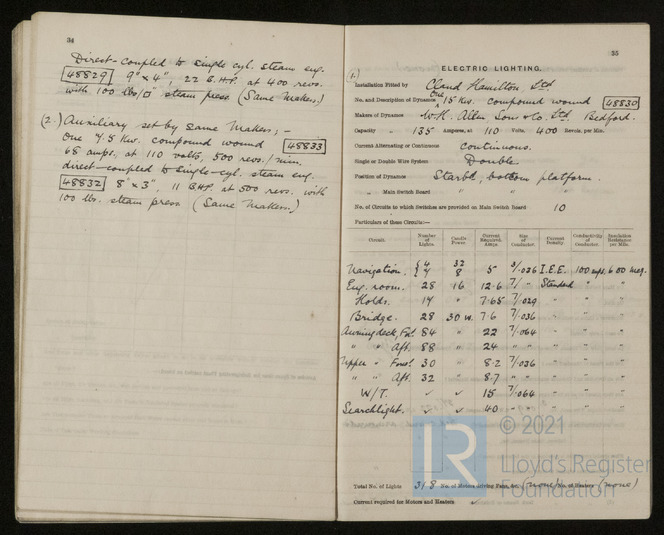 34
Direct-coupled to single cyl. steam eng.
48829 9" x 4", 22 B.H.P. at 400 revs.
with 100 lbs/□" steam press (Same Makers.)
(2.) Auxiliary set by same Makers; -
One 7.5 Kw. compound wound 48833
68 amps. at 110 volts, 500 revs./min.
direct-coupled to single-cyl. steam eng.
48832 8" x 3", 11 BHP. at 500 revs. with
100 lb. steam press (Same Makers.)
35
ELECTRIC LIGHTING.
(1.)
Installation Fitted by Claud Hamilton Ltd
No. and Description of Dynamos One 15 Kw. compound wound 48830
Makers of Dynamos W.H. Allen Sons & Co. Ltd, Bedford.
Capacity " 135 Amperes, at 110 Volts, 400 Revols. per Min.
Current Alternating or Continuous Continuous.
Single or Double Wire System Double.
Position of Dynamos Starbd, bottom platform.
" Main Switch Board " " "
No. of Circuits to which Switches are provided on Main Switch Board 10
Particulars of these Circuits:—
Circuit. Number of Lights. Candle Power. Current Required. Amps. Size of Conductor. Current Density. Conductivity of Conductor. Insulation Resistance per Mile.
Navigation. { 4 32
{ 7 8 5 3/.036 I.E.E. 100 mps. 600 meg.
Eng. room. 28 16 12.6 7/ " Standard " "
Holds. 17 " 7.65 7/.029 " " "
Bridge. 28 30 w. 7.6 7/.036 " " "
Awning deck, For'd. 84 " 22 7/.064 " " "
" " Aft. 88 " 24 " " " " "
Upper " For'd. 30 " 8.2 7/.036 " " "
" " Aft. 32 " 8.7 " " " " "
W/T. ✓ ✓ 15 7/.064 " " "
Searchlight. ✓ ✓ 40 " " " " "
Total No. of Lights 318 No. of Motors driving Fans, &c. (none) No. of Heaters (none)
Current required for Motors and Heaters ✓
© 2021
LR
Lloyd's Register
Foundation